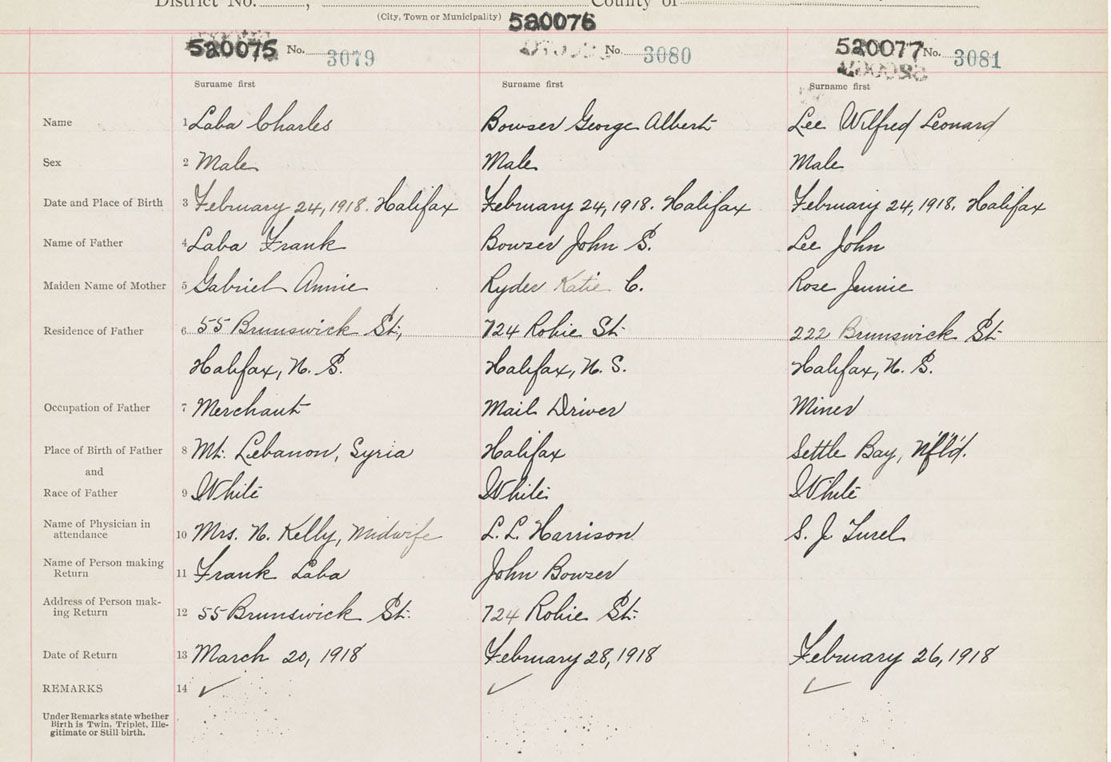 District No. , County of
(City, Town or Municipality)
520075 No. 3079 520076 No. 3080 520077 No. 3081
Surname first Surname first Surname first
Name 1 Laba Charles Bowser George Albert Lee Wilfred Leonard
Sex 2 Male Male Male
Date and Place of Birth 3 February 24, 1918. Halifax February 24, 1918. Halifax February 24, 1918. Halifax
Name of Father 4 Laba Frank Bowser John S. Lee John
Maiden Name of Mother 5 Gabriel Annie Ryder Katie C. Rose Jennie
Residence of Father 6 55 Brunswick St., 724 Robie St. 222 Brunswick St.
Halifax, N. S. Halifax, N. S. Halifax, N. S.
Occupation of Father 7 Merchant Mail Driver Miner
Place of Birth of Father 8 Mt. Lebanon, Syria Halifax Settle Bay, Nfl'd.
and
Race of Father 9 White White White
Name of Physician in
attendance 10 Mrs. N. Kelly, Midwife L. L. Harrison S. J. Turel
Name of Person making
Return 11 Frank Laba John Bowser
Address of Person mak-
ing Return 12 55 Brunswick St. 724 Robie St.
Date of Return 13 March 20, 1918 February 28, 1918 February 26, 1918
REMARKS 14 ✓ ✓ ✓
Under Remarks state whether
Birth is Twin, Triplet, Ille-
gitimate or Still birth.